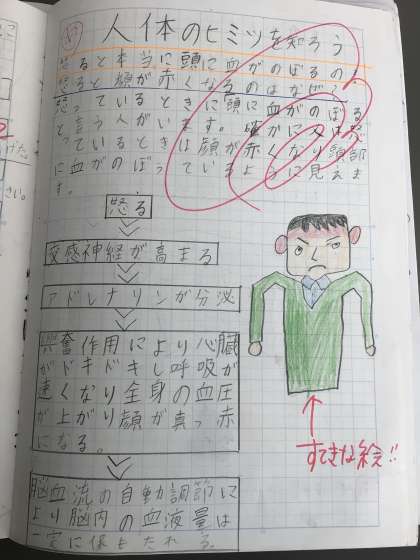 人体のヒミツを知ろう
怒ると本当に頭に血がのぼるの
怒ると顔が赤くなるのはなぜ?
怒っているときに頭に血がのぼる
と言う人がいます。確かに人は怒
っているときは顔が赤くなり頭部
に血がのぼっているように見えま
す。
怒る
交感神経が高まる
アドレナリンが分泌
興奮作用により心臓
がドキドキし呼吸が
速くなり全身の血圧
が上がり顔が真っ赤
になる。
すてきな絵!!
脳血流の自動調節に
より脳内の血液量は
一定に保もたれる。